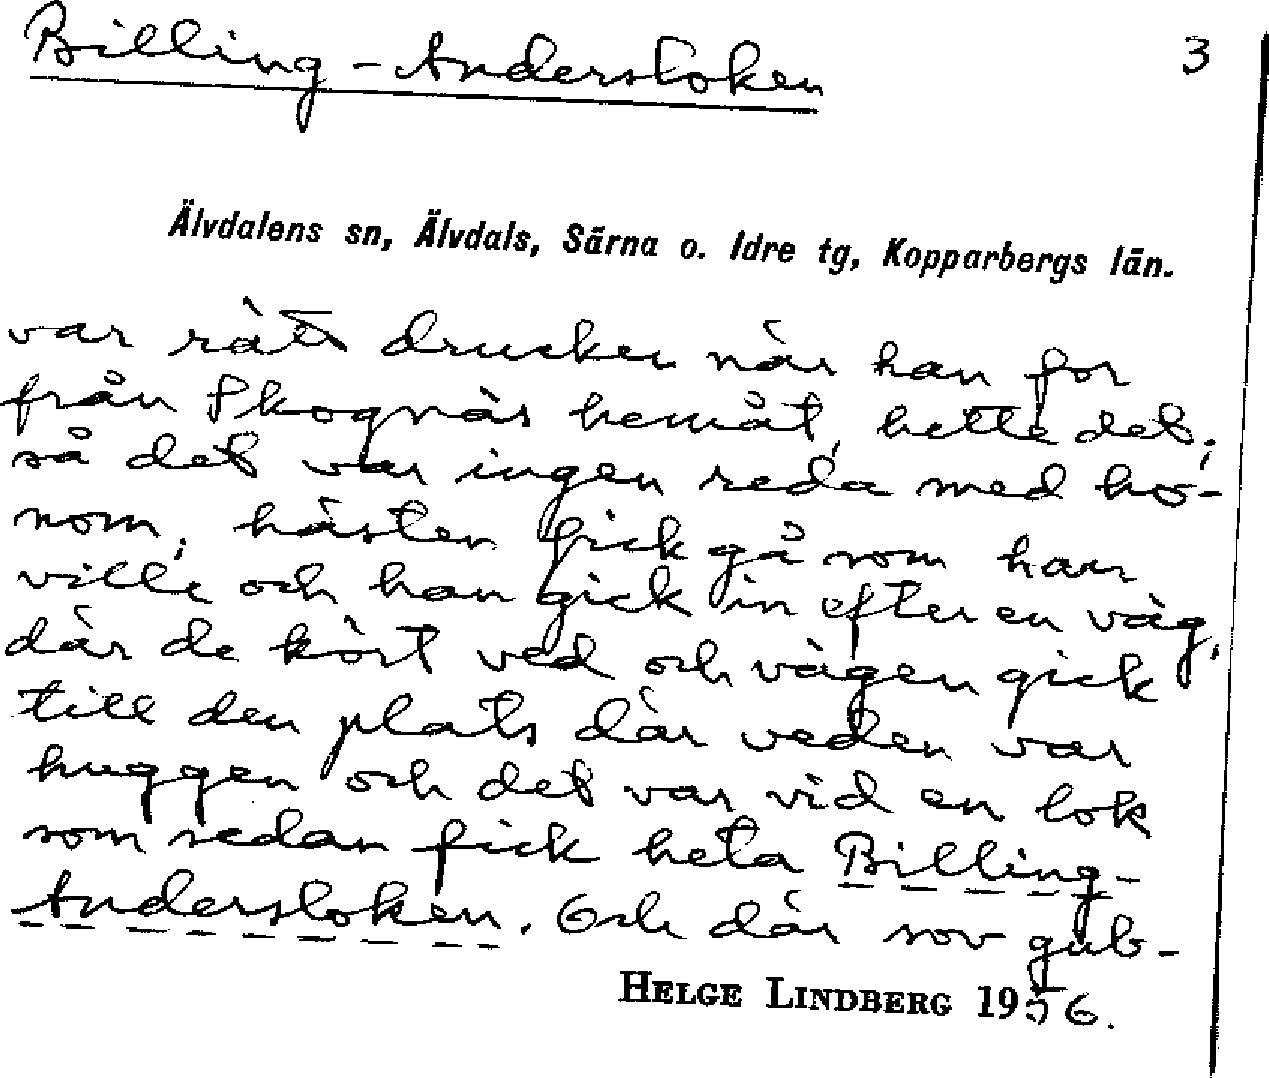 Billing-Andersloken 3
Älvdalens sn, Älvdals, Särna o. Idre tg, Kopparbergs län.
var rätt drucken när han for
från Skognäs hemåt, hette det;
så det var ingen reda med ho-
nom; hästen fick gå som han
ville och han gick in efter en väg,
där de kört ved och vägen gick
till den plats där veden var
huggen och det var vid en lok
som sedan fick heta Billing-
Andersloken. Och där sov gub-
HELGE LINDBERG 1956.